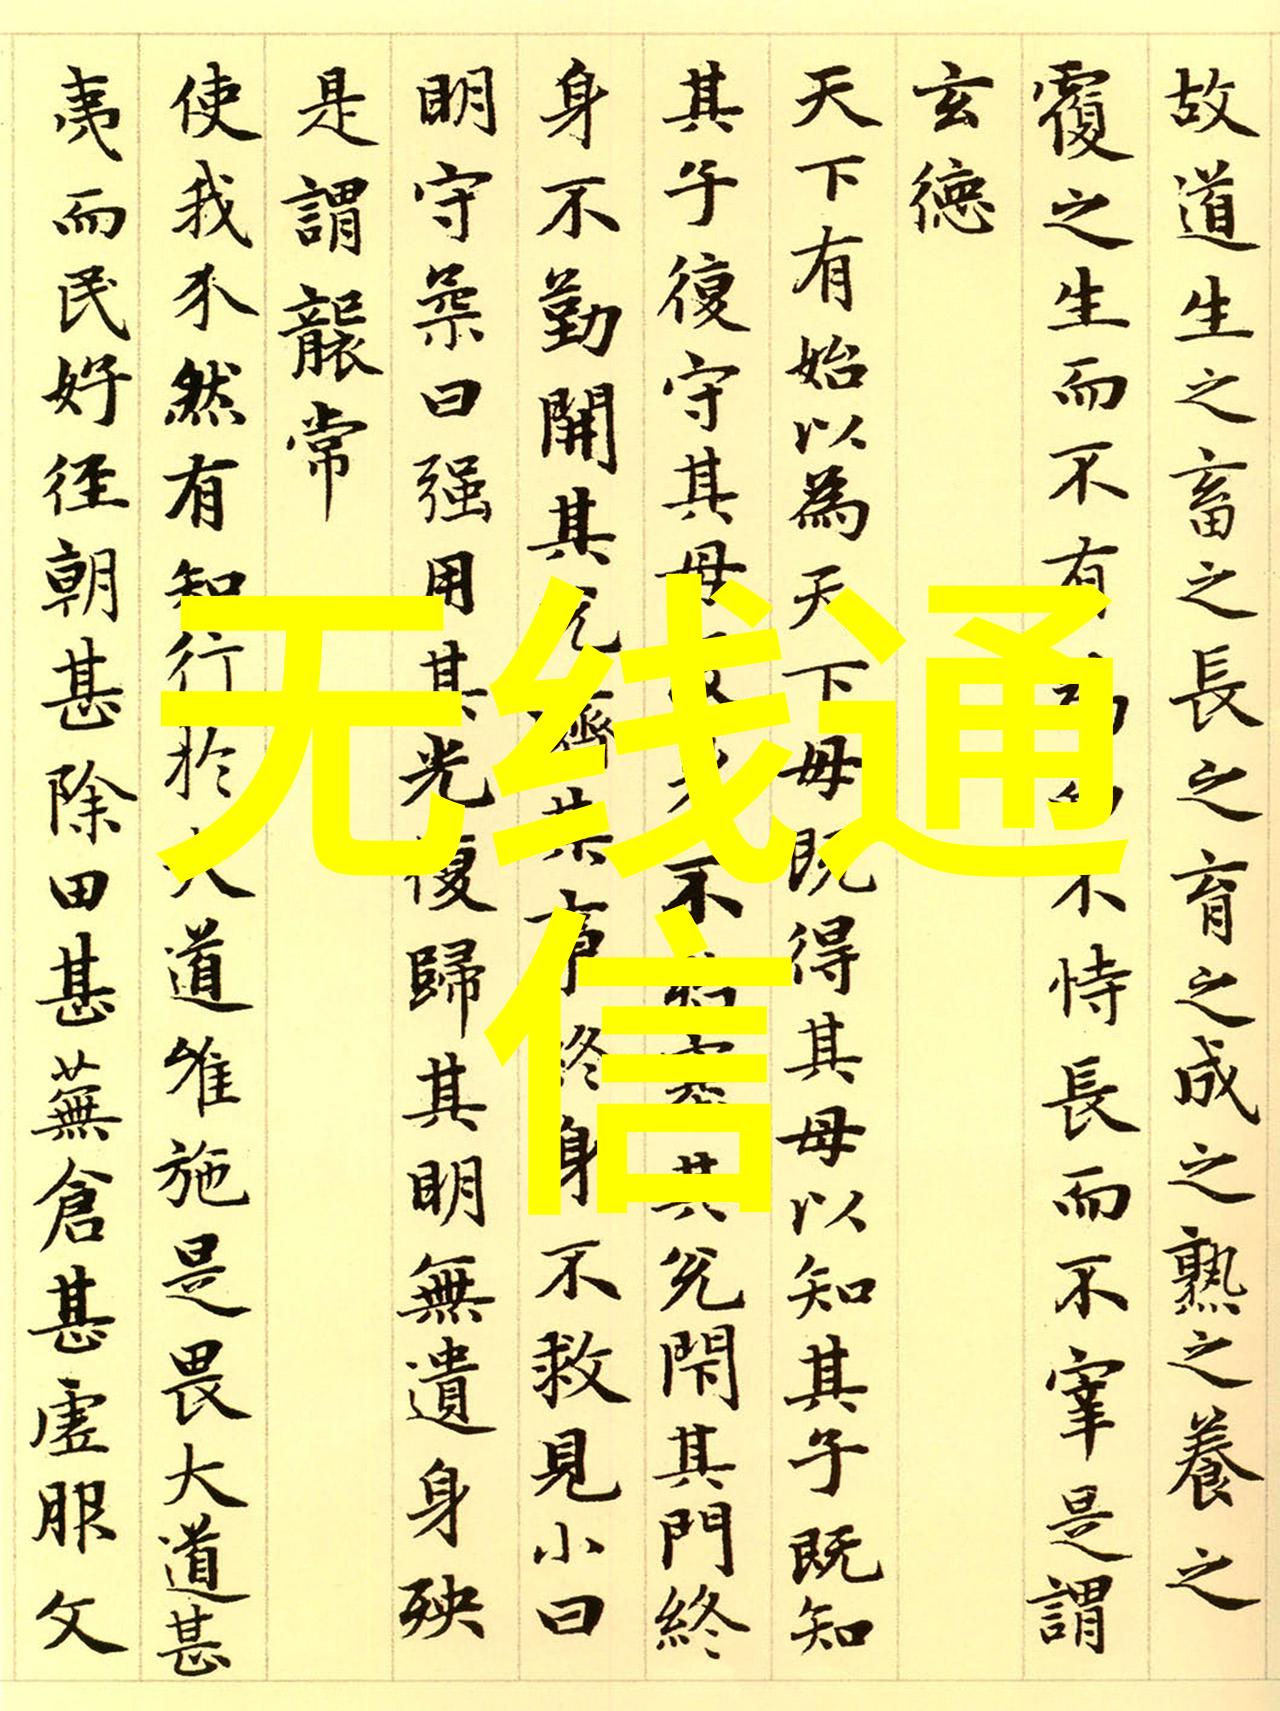 故道生之畜之長之育之成之熟之養之
覆之生而不有為而不恃長而不宰是謂
玄德
天下有始以為天下母既得其母以知其子既知
其子復守其母没身不殆塞其兊閇其門終
身不勤開其兊濟其事終身不救見小曰
明守柔曰强用其光復歸其明無遺身殃
是謂襲常
使我介然有知行於大道唯施是畏大道甚
夷而民好徑朝甚除田甚蕪倉甚虛服文
无线通
信